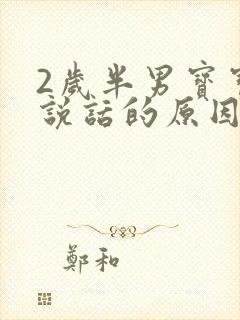 2歲半男寶
說話的原因
鄭和